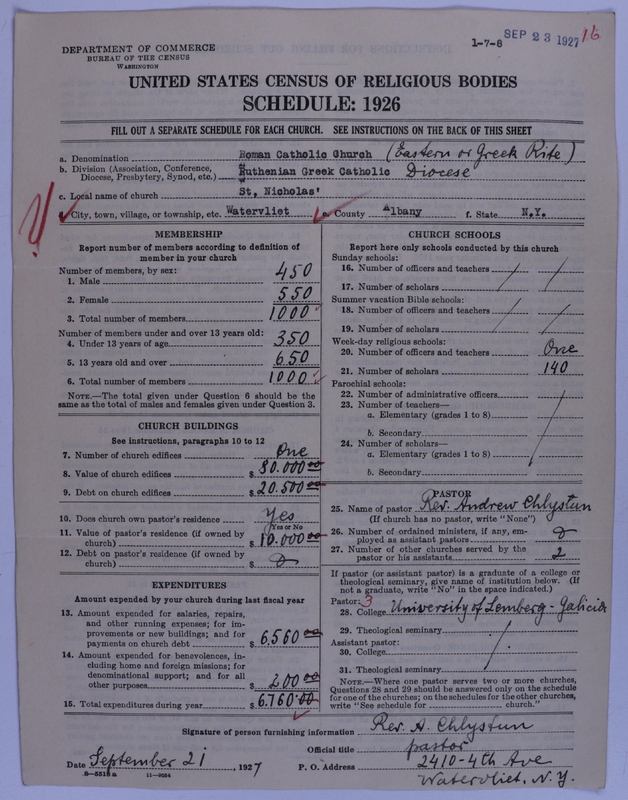 1-7-8 SEP 23 1927 16
DEPARTMENT OF COMMERCE
BUREAU OF THE CENSUS
WASHINGTON
UNITED STATES CENSUS OF RELIGIOUS BODIES
SCHEDULE: 1926
FILL OUT A SEPARATE SCHEDULE FOR EACH CHURCH. SEE INSTRUCTIONS ON THE BACK OF THIS SHEET
a. Denomination Roman Catholic Church (Eastern or Greek Rite)
b. Division (Association, Conference, Diocese, Presbytery, Synod, etc.) Ruthenian Greek Catholic Diocese
c. Local name of church St, Nicholas'
d. City, town, village, or township, etc. Watervliet e. County Albany f. State N.Y.
MEMBERSHIP
Report number of members according to definition of
member in your church
Number of members, by sex:
1. Male 450
2. Female 550
3. Total number of members 1000
Number of members under and over 13 years old:
4. Under 13 years of age 350
5. 13 years old and over 650
6. Total number of members 1000
NOTE.—The total given under Question 6 should be
same as the total of males and females given under Question 3.
CHURCH BUILDINGS
See instructions, paragraphs 10 to 12
7. Number of church edifices One
8. Value of church edifices $ 80.000.00
9. Debt on church edifices $ 20.500.00
10. Does church own pastor's residence Yes
(Yes or No)
11. Value of pastor's residence (if owned by
church) $ 10.000.00
12. Debt on pastor's residence (if owned by
church) $ 0
EXPENDITURES
Amount expended by your church during last fiscal year
13. Amount expended for salaries, repairs,
and other running expenses; for im-
provements or new buildings; and for
payments on church debt $ 6.560.00
14. Amount expended for benevolences, in-
cluding home and foreign missions; for
denominational support; and for all
other purposes $ 200.00
15. Total expenditures during year $ 6.760.00
CHURCH SCHOOLS
Report here only schools conducted by this church
Sunday schools:
16. Number of officers and teachers
17. Number of scholars
Summer vacation Bible schools:
18. Number of officers and teachers
19. Number of scholars
Week-day religious schools:
20. Number of officers and teachers One
21. Number of scholars 140
Parochial schools:
22. Number of administrative officers
23. Number of teachers—
a. Elementary (grades 1 to 8)
b. Secondary
24. Number of scholars—
a. Elementary (grades 1 to 8)
b. Secondary
PASTOR
25. Name of pastor Rev. Andrew Chlystun
(If church has no pastor, write "None")
26. Number of ordained ministers, if any, em-
ployed as assistant pastors 0
27. Number of other churches served by the
pastor or his assistants 2
If pastor (or assistant pastor) is a graduate of a college or
theological seminary, give name of institution below. (If
not a graduate, write "No" in the space indicated.)
Pastor: 3
28. College University of Lemberg - Galicia
29. Theological seminary
Assistant pastor:
30. College
31. Theological seminary
NOTE.—Where one pastor serves two or more churches,
Questions 28 and 29 should be answered only on the schedule
for one of the churches; on the schedules for the other churches,
write "See schedule for church."
Signature of person furnishing information Rev. A. Chlystun
Official title pastor
Date September 21, 1927 P. O. Address 2410-4th Ave
Watervliet, N.Y.
11-9054